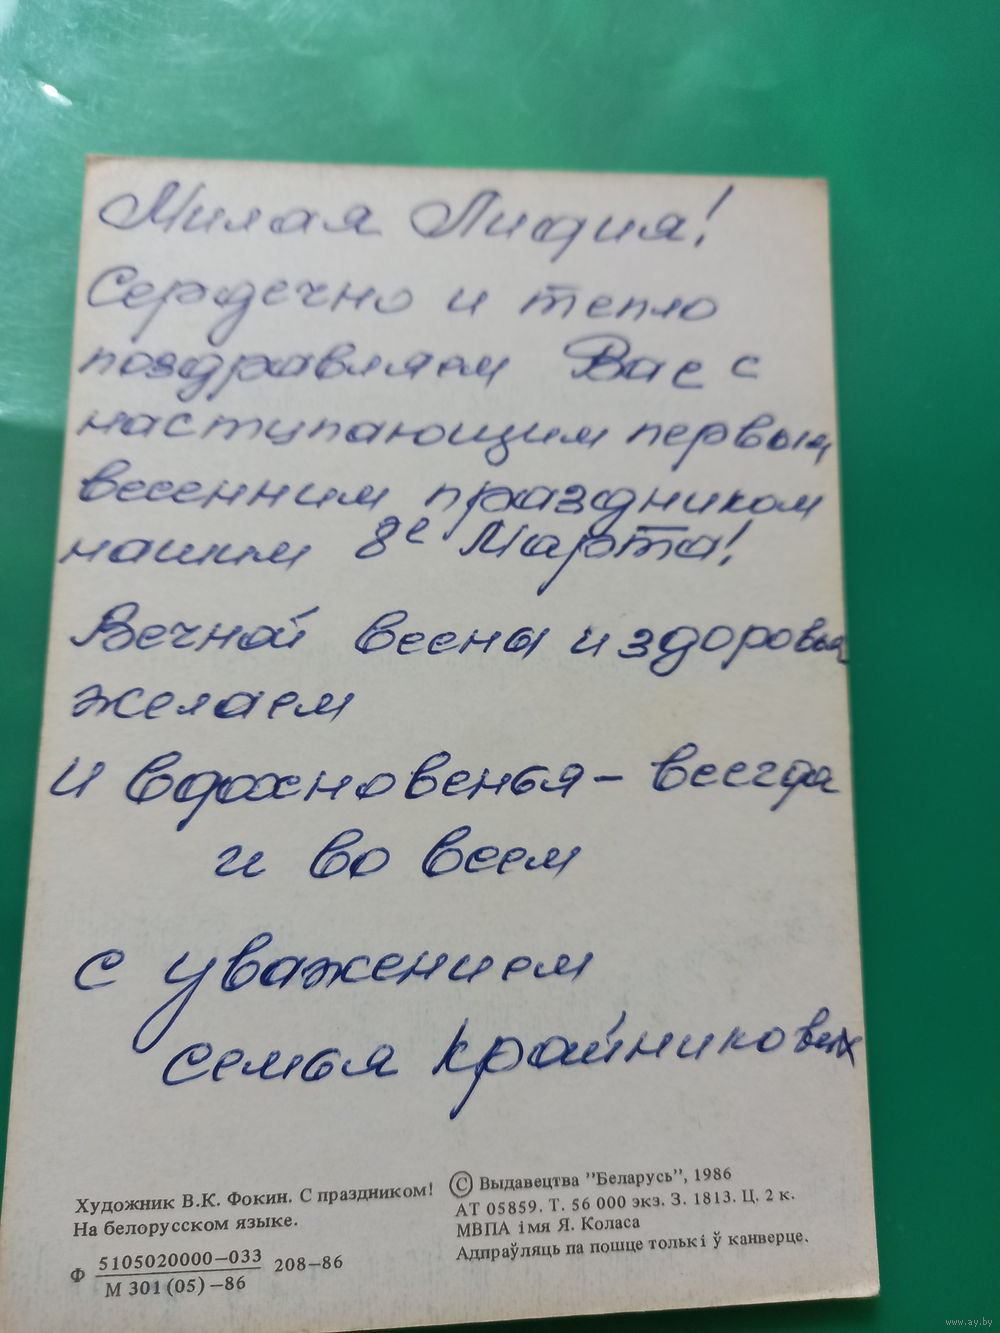 Милая Лидия!
Сердечно и тепло
поздравляем Вас с
наступающим первым
весенним праздником
нашим 8е Марта!
Вечной весны и здоровья
желаем
и вдохновенья – всегда
и во всем
с уважением
семья Крайниковых
Художник В.К. Фокин. С праздником!
На белорусском языке.
Ф 5105020000–033
М 301(05)–86
208–86
© Выдавецтва ”Беларусь”, 1986
АТ 05859. Т. 56 000 экз. З. 1813. Ц. 2 к.
МВПА імя Я. Коласа
Адпраўляць па пошце толькі ў канверце.
www.ay.by